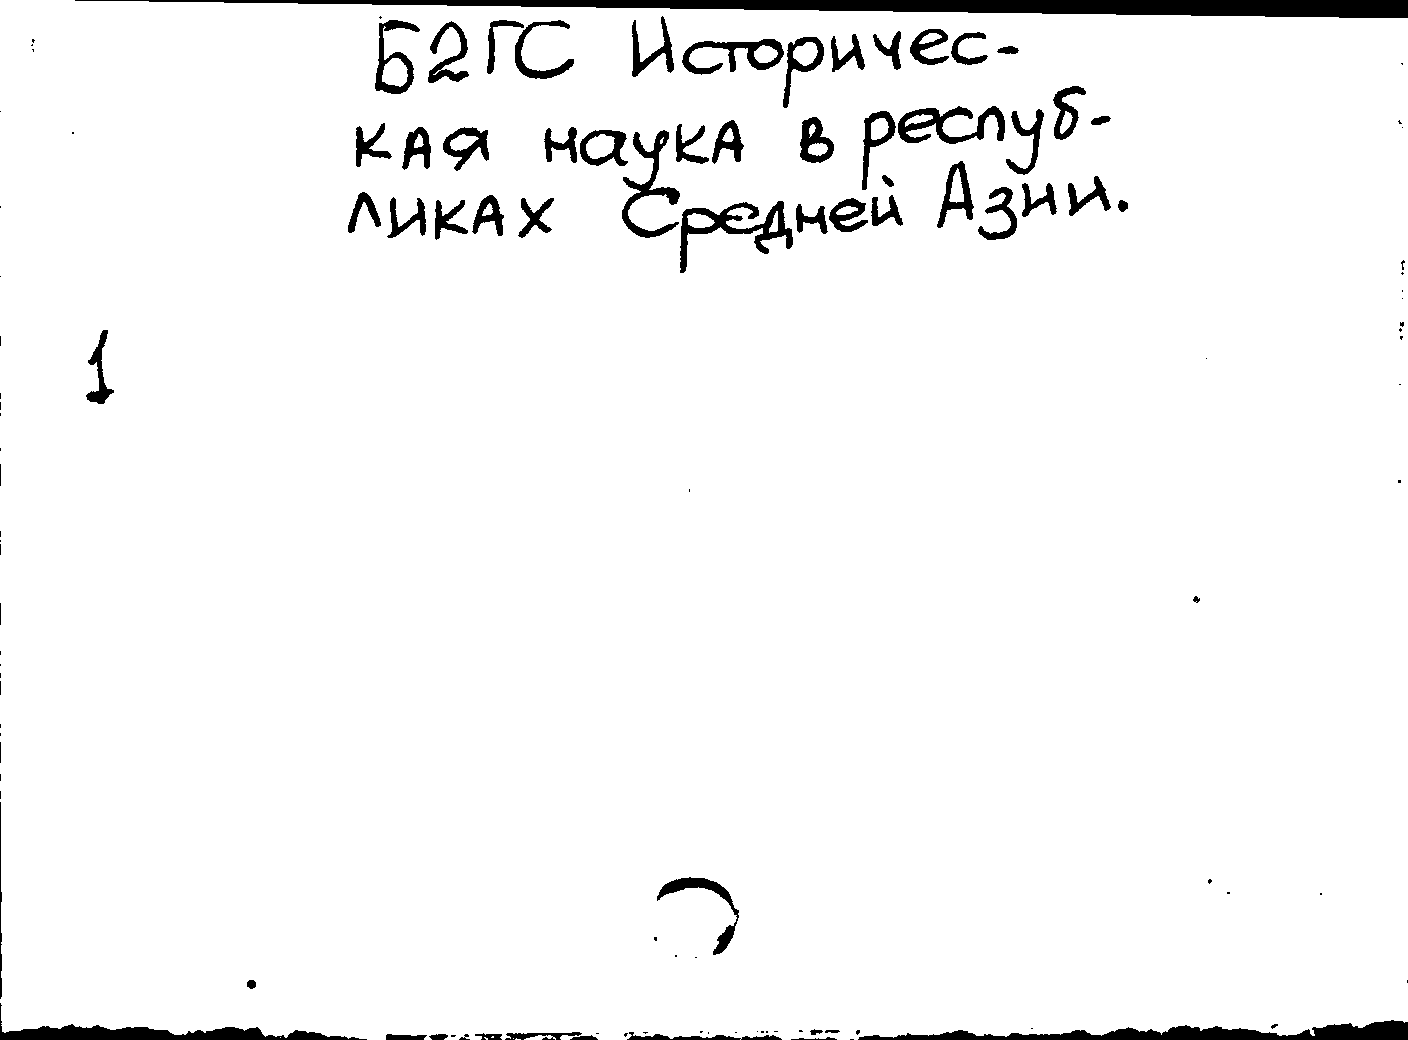 Б2ГС Историчес-
кая наука в респуб-
ликах Средней Азии.
1